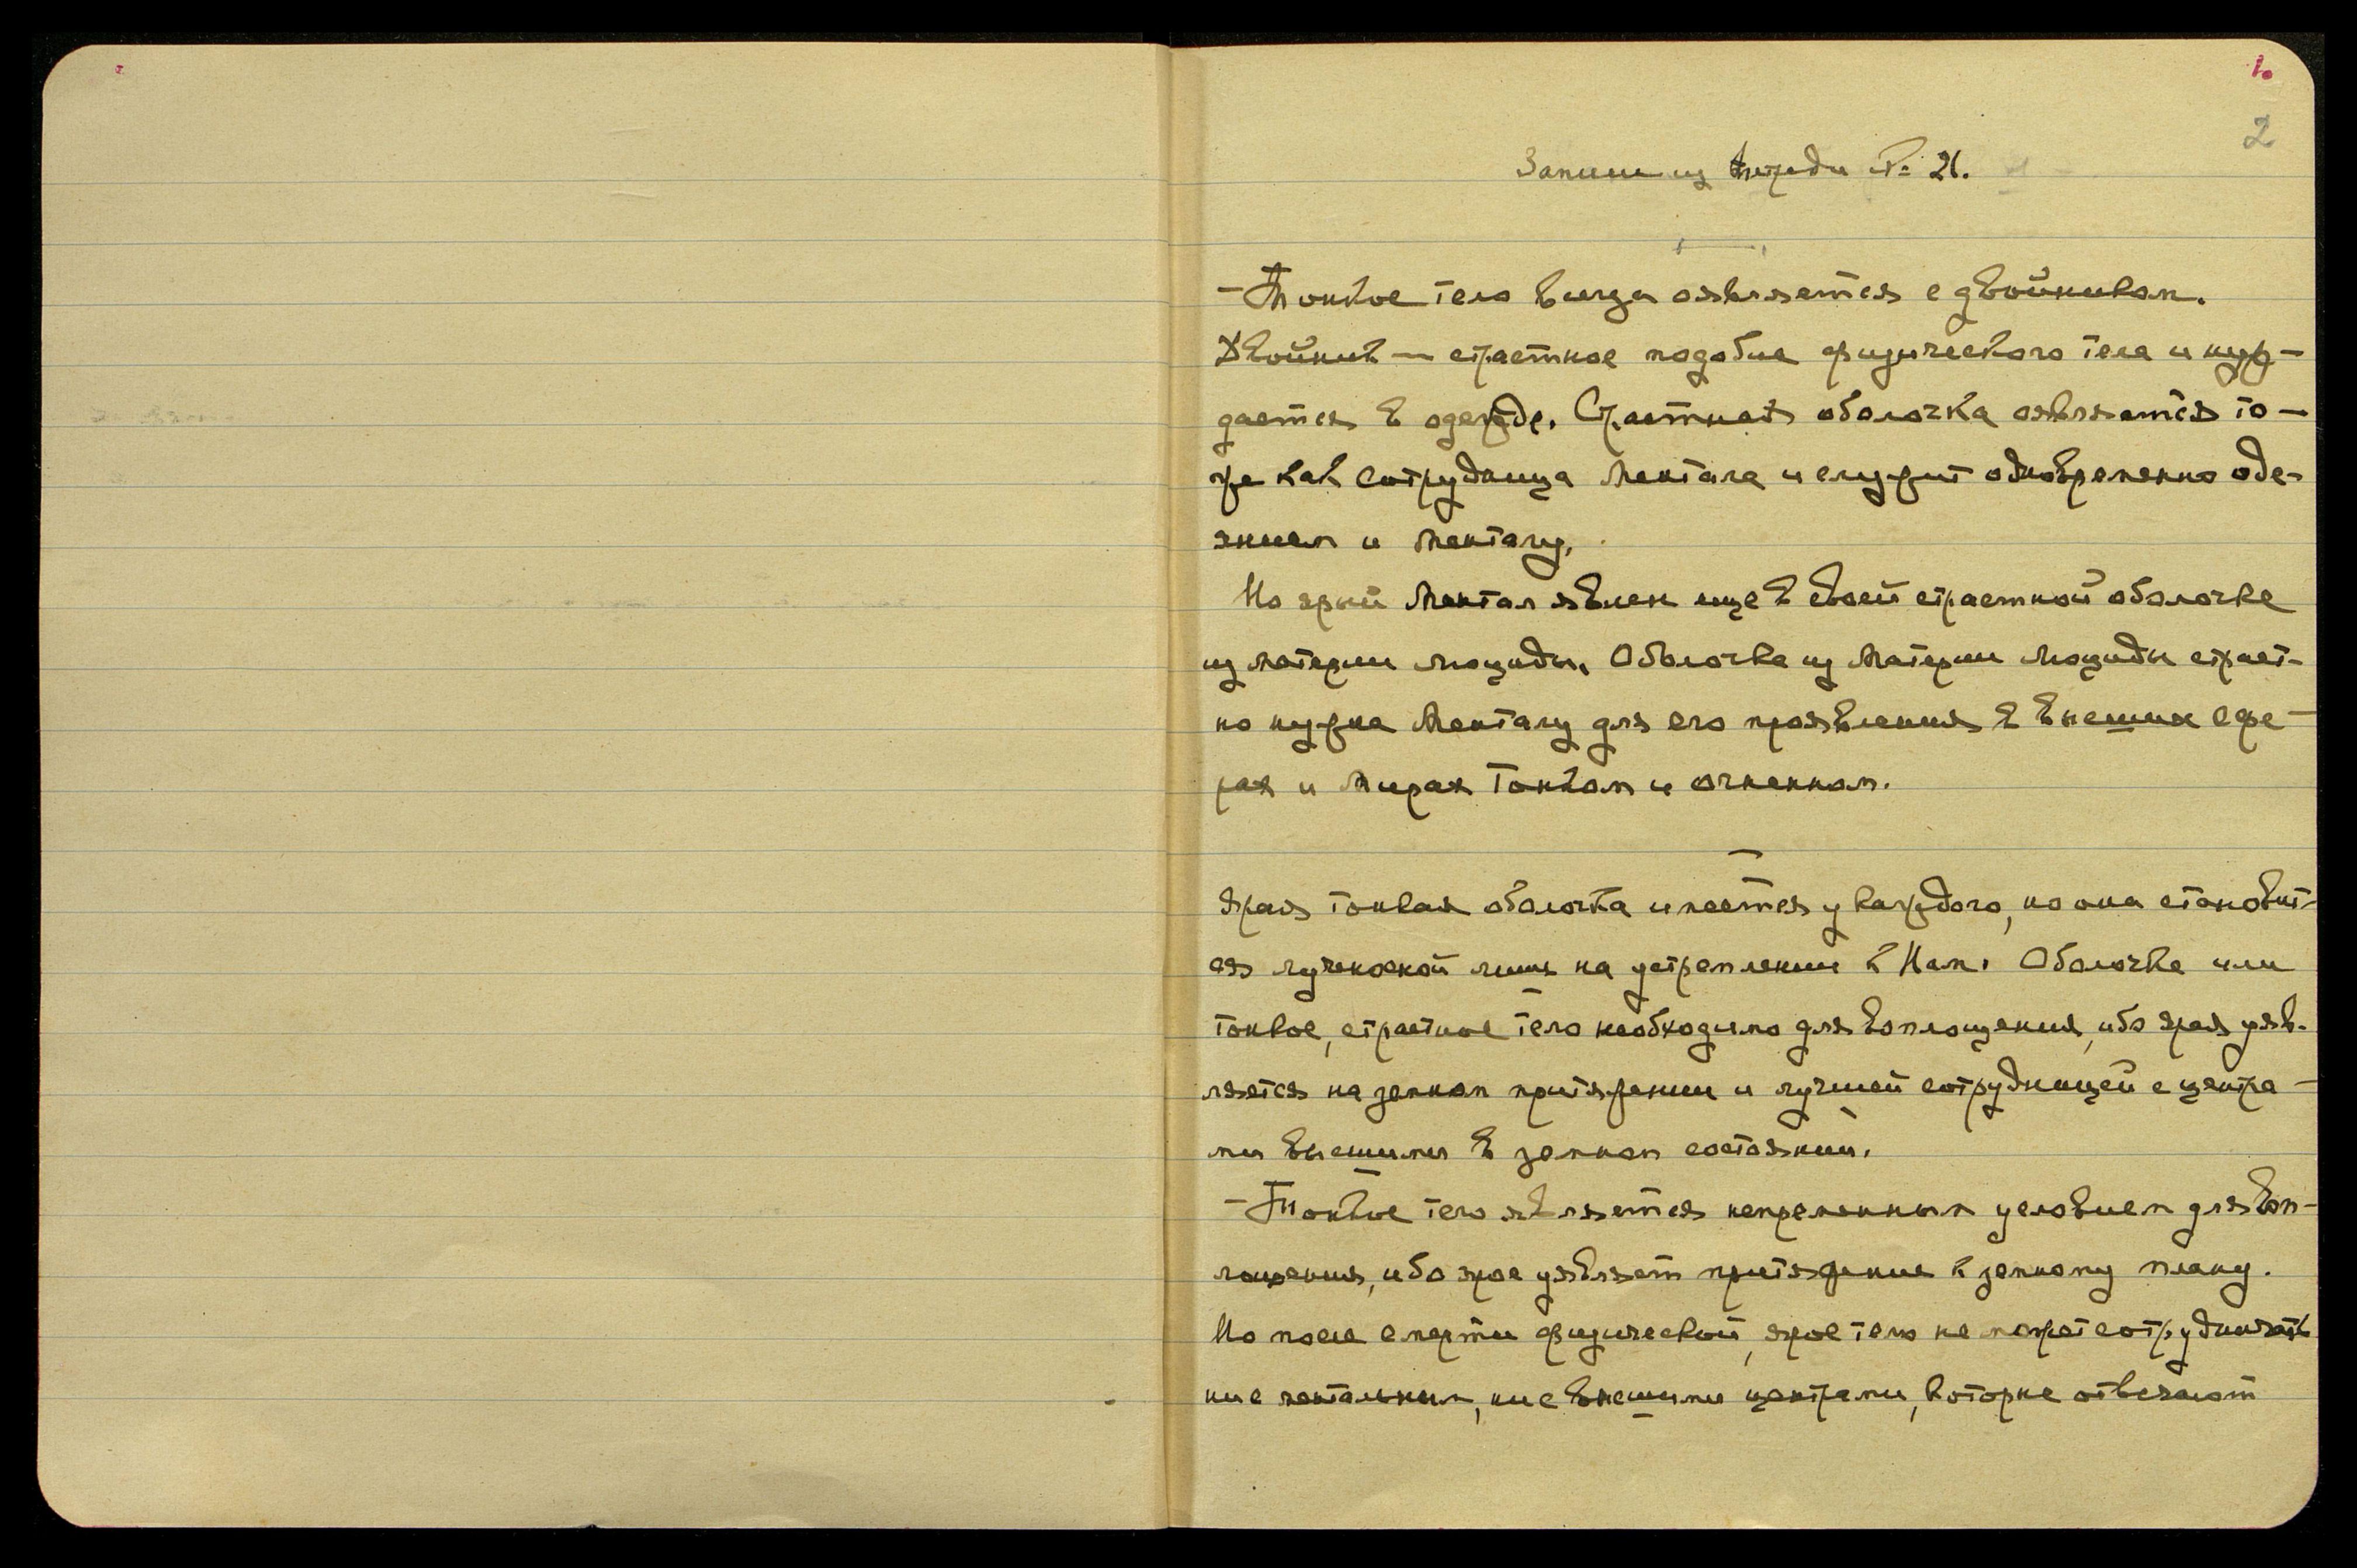 1.
2
Записи из тетради № 21.
— Тонкое тело всегда оявляется с двойником.
Двойник — страстное подобие физического тела и нуж-
дается в одежде. Страстная оболочка оявляется то-
же как сотрудница Ментала и служит одновременно оде-
янием и Менталу.
Но ярый Ментал явлен еще в своей страстной оболочке
из материи люциды. Оболочка из Материи Люциды страст-
но нужна Менталу для его проявления в внешних сфе-
рах и Мирах Тонком и огненном.
Ярая тонкая оболочка имеется у каждого, но она становит-
ся лученосной лишь на устремлении к Нам. Оболочка или
тонкое, страстное тело необходимо для воплощения, ибо ярая уяв-
ляется на земном притяжении и лучшей сотрудницей с центра-
ми высшими в земном состоянии.
— Тонкое тело является непременным условием для воп-
лощения, ибо ярое уявляет притяжение к земному плану.
Но после смерти физической, ярое тело не может сотрудничать
ни с ментальным, ни с внешними центрами, которые отвечают